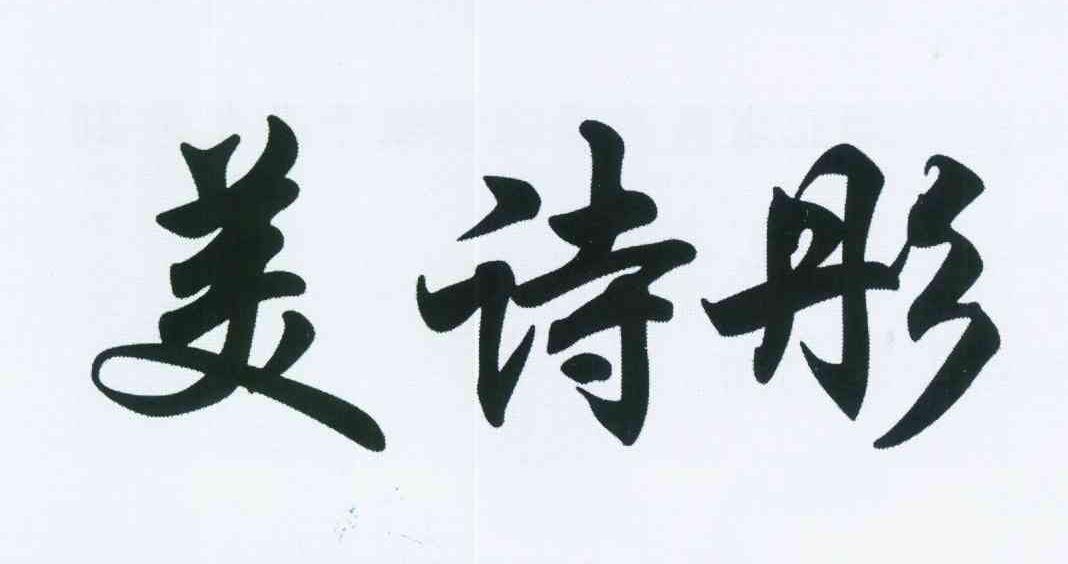 美诗彤